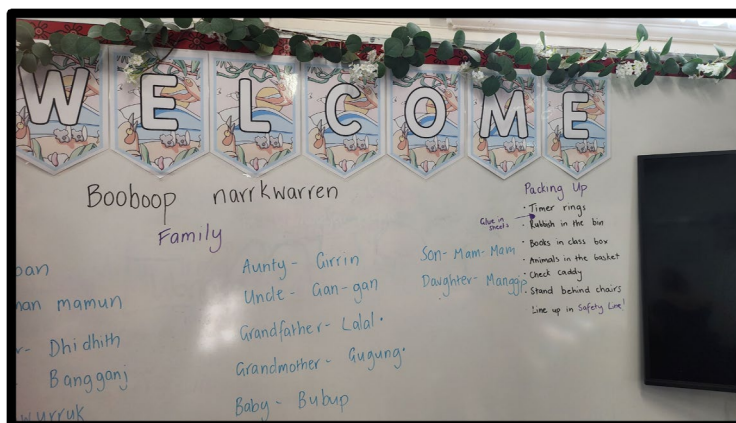 WELCOME
Booboop narrkwarren
Family
mamun
Dhidhith
Bangganj
Aunty - Girrin
Uncle - Gan-gan
Grandfather - Lalal
Grandmother - Gugung
Baby - Bubup
Son - Mam-Mam
Daughter - Manggip
Packing Up
· Timer rings
Glue in sheets
· Rubbish in the bin
· Books in class box
· Animals in the basket
· Check caddy
· Stand behind chairs
Line up in Safety Line!